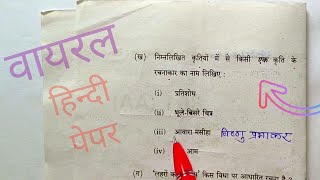 वायरल
हिन्दी
पेपर
(ख) निम्नलिखित कृतियों में से किसी एक कृति के
रचनाकार का नाम लिखिए :
(i) प्रतिशोध
(ii) भूले-बिसरे चित्र
(iii) आवारा मसीहा विष्णु प्रभाकर
(iv) आम
(ग) किस विधा पर आधारित रचना है ?